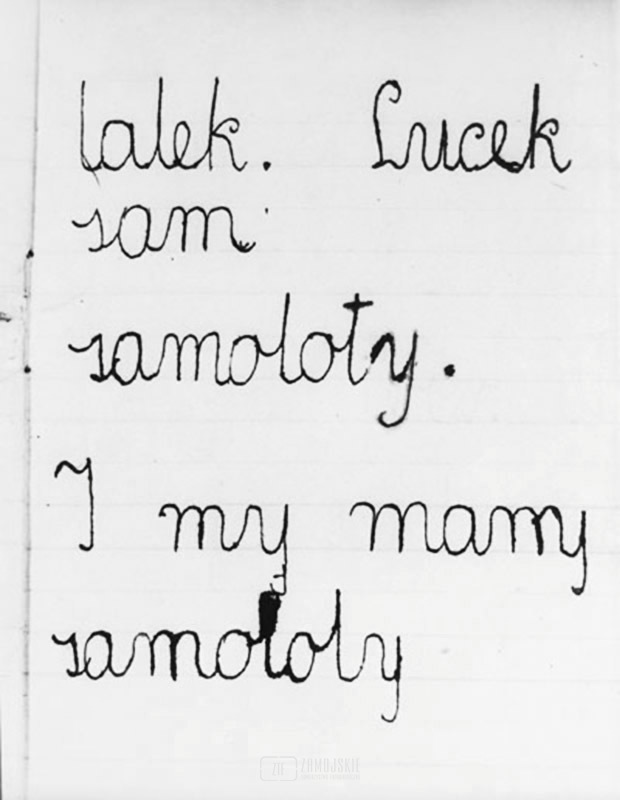 lalek. Lucek
sam
samoloty.
I my mamy
samoloty
ZAMOJSKIE